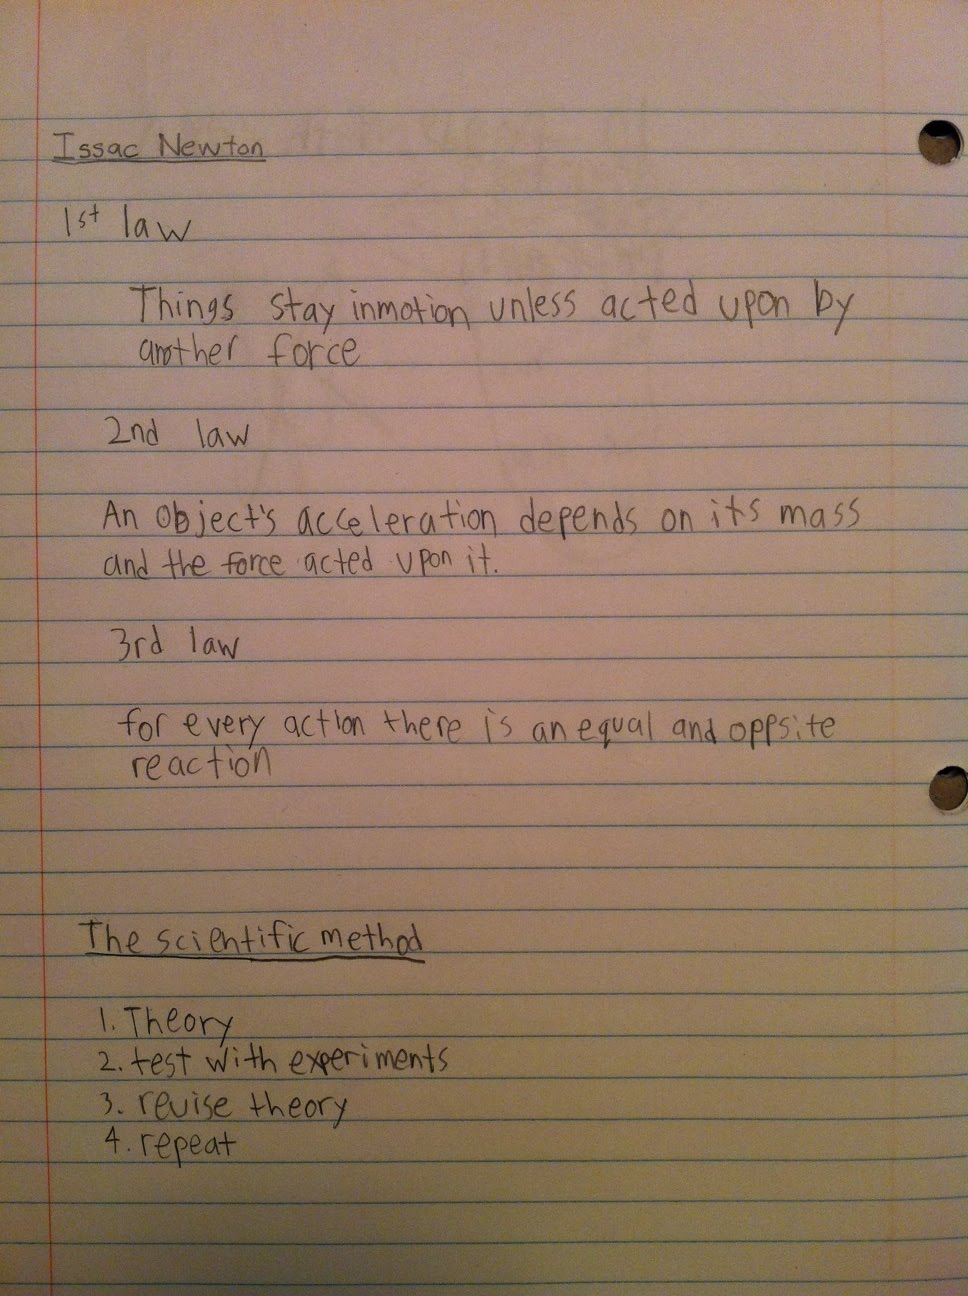 Issac Newton
1st law
Things stay inmotion unless acted upon by
another force
2nd law
An object's acceleration depends on its mass
and the force acted upon it.
3rd law
for every action there is an equal and oppsite
reaction
The scientific method
1. Theory
2. test with experiments
3. revise theory
4. repeat